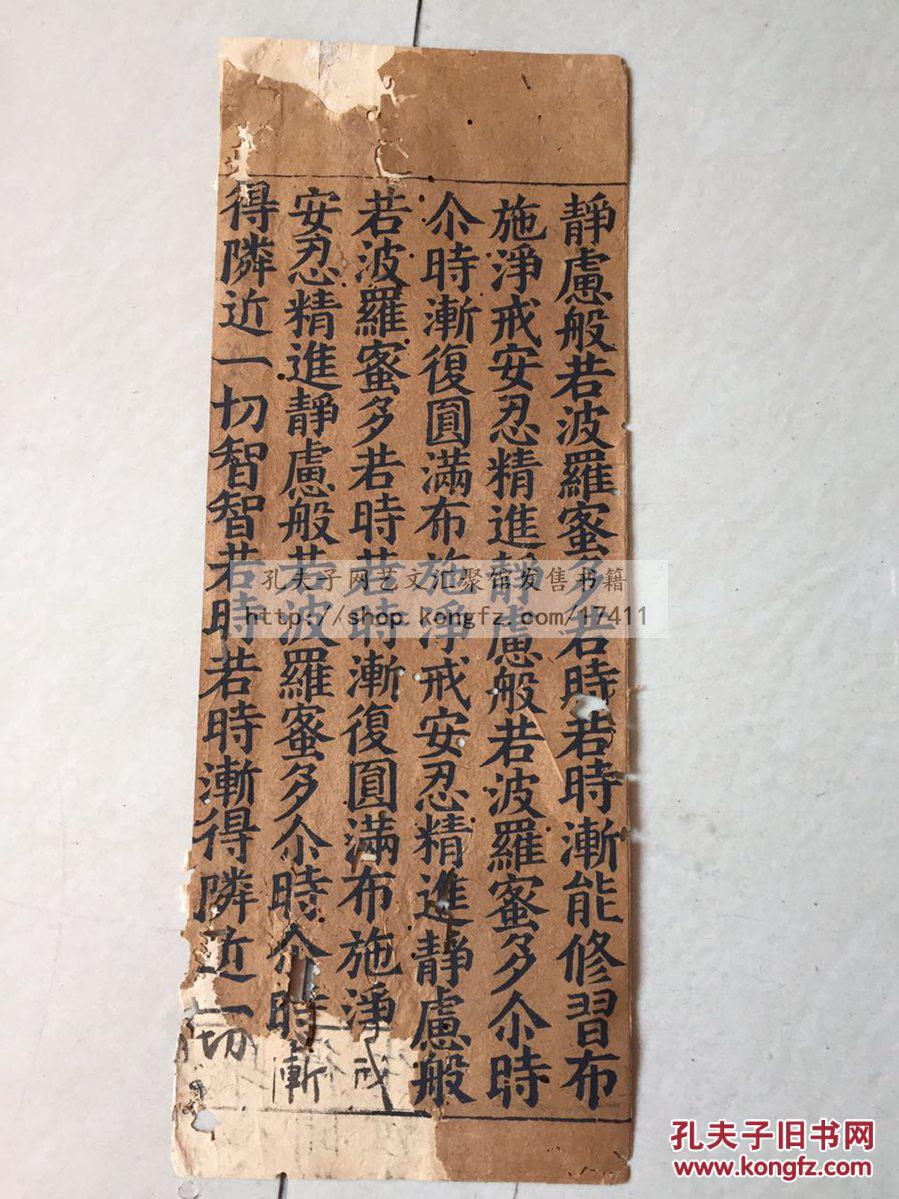 靜慮般若波羅蜜多若時若時漸能修習布
施淨戒安忍精進靜慮般若波羅蜜多尒時
尒時漸復圓滿布施淨戒安忍精進靜慮般
若波羅蜜多若時若時漸復圓滿布施淨戒
安忍精進靜慮般若波羅蜜多尒時尒時漸
得隣近一切智智若時若時漸得隣近一切
孔夫子网艺文汇聚馆发售书籍
http://shop.kongfz.com/17411
孔夫子旧书网
www.kongfz.com